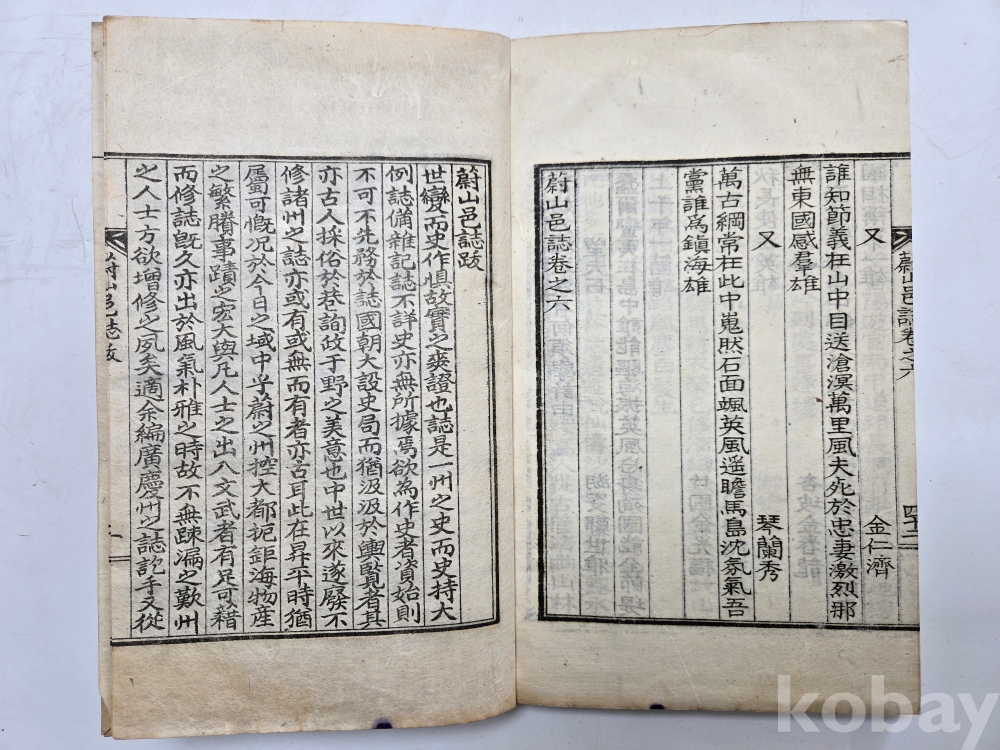 又
金仁濟
誰知節義在山中目送滄溟萬里風夫死於忠妻激烈那
無東國感羣雄
又
琴蘭秀
萬古綱常在此中嵬然石面颯英風遥瞻馬島沈氛氣吾
黨誰爲鎭海雄
蔚山邑誌卷之六
蔚山邑誌卷之六
四十二
蔚山邑誌跋
世變而史作惧故實之爽證也誌是一州之史而史持大
例誌備雜記誌不詳史亦無所據焉欲為作史者資始則
不可不先務於誌國朝大設史局而猶汲汲於輿覽者其
亦古人採俗於巷詢政于野之美意也中世以來遂廢不
修諸州之誌亦或有或無而有者亦古耳此在昇平時猶
屬可慨况於今日之域中乎蔚之州控大都扼鉅海物産
之繁賸事蹟之宏大與凡人士之出入文武者有足可藉
而修誌旣久亦出於風氣朴雅之時故不無踈漏之歎州
之人士方欲增修之夙矣適余編廣慶州之誌訖手又從
蔚山邑誌跋
一
kobay